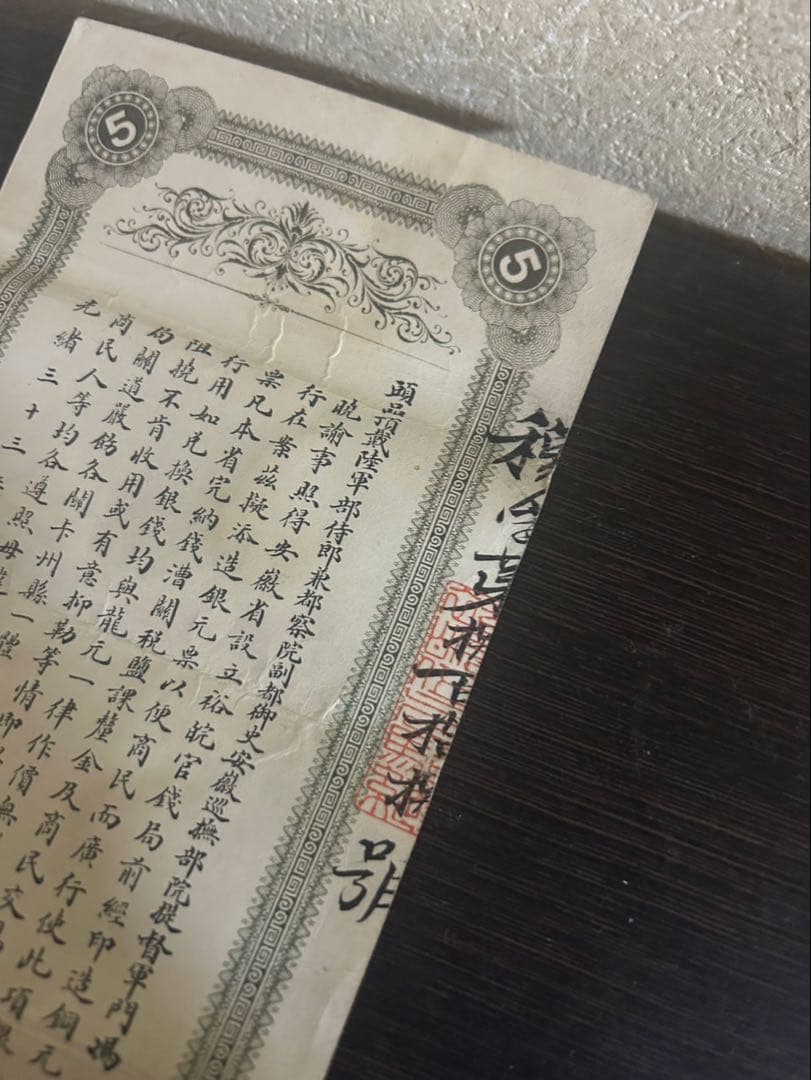 5
5
頭品頂戴陸軍部侍郎兼都察院副都御史安徽巡撫部院提督軍門馮
曉諭事照得安徽省設立裕皖官錢局前經印造銅元
行在案茲擬添造銀元票以便商民而廣行使此項銀
票凡本省完納錢漕關稅鹽課釐金及商民交
行用如兌換銀錢均與龍元一律作價無
阻撓不肯收用或有意抑勒等情即
飭關道嚴飭各關卡州縣一體
商民人等均各遵照毋違
光緒三十三
號